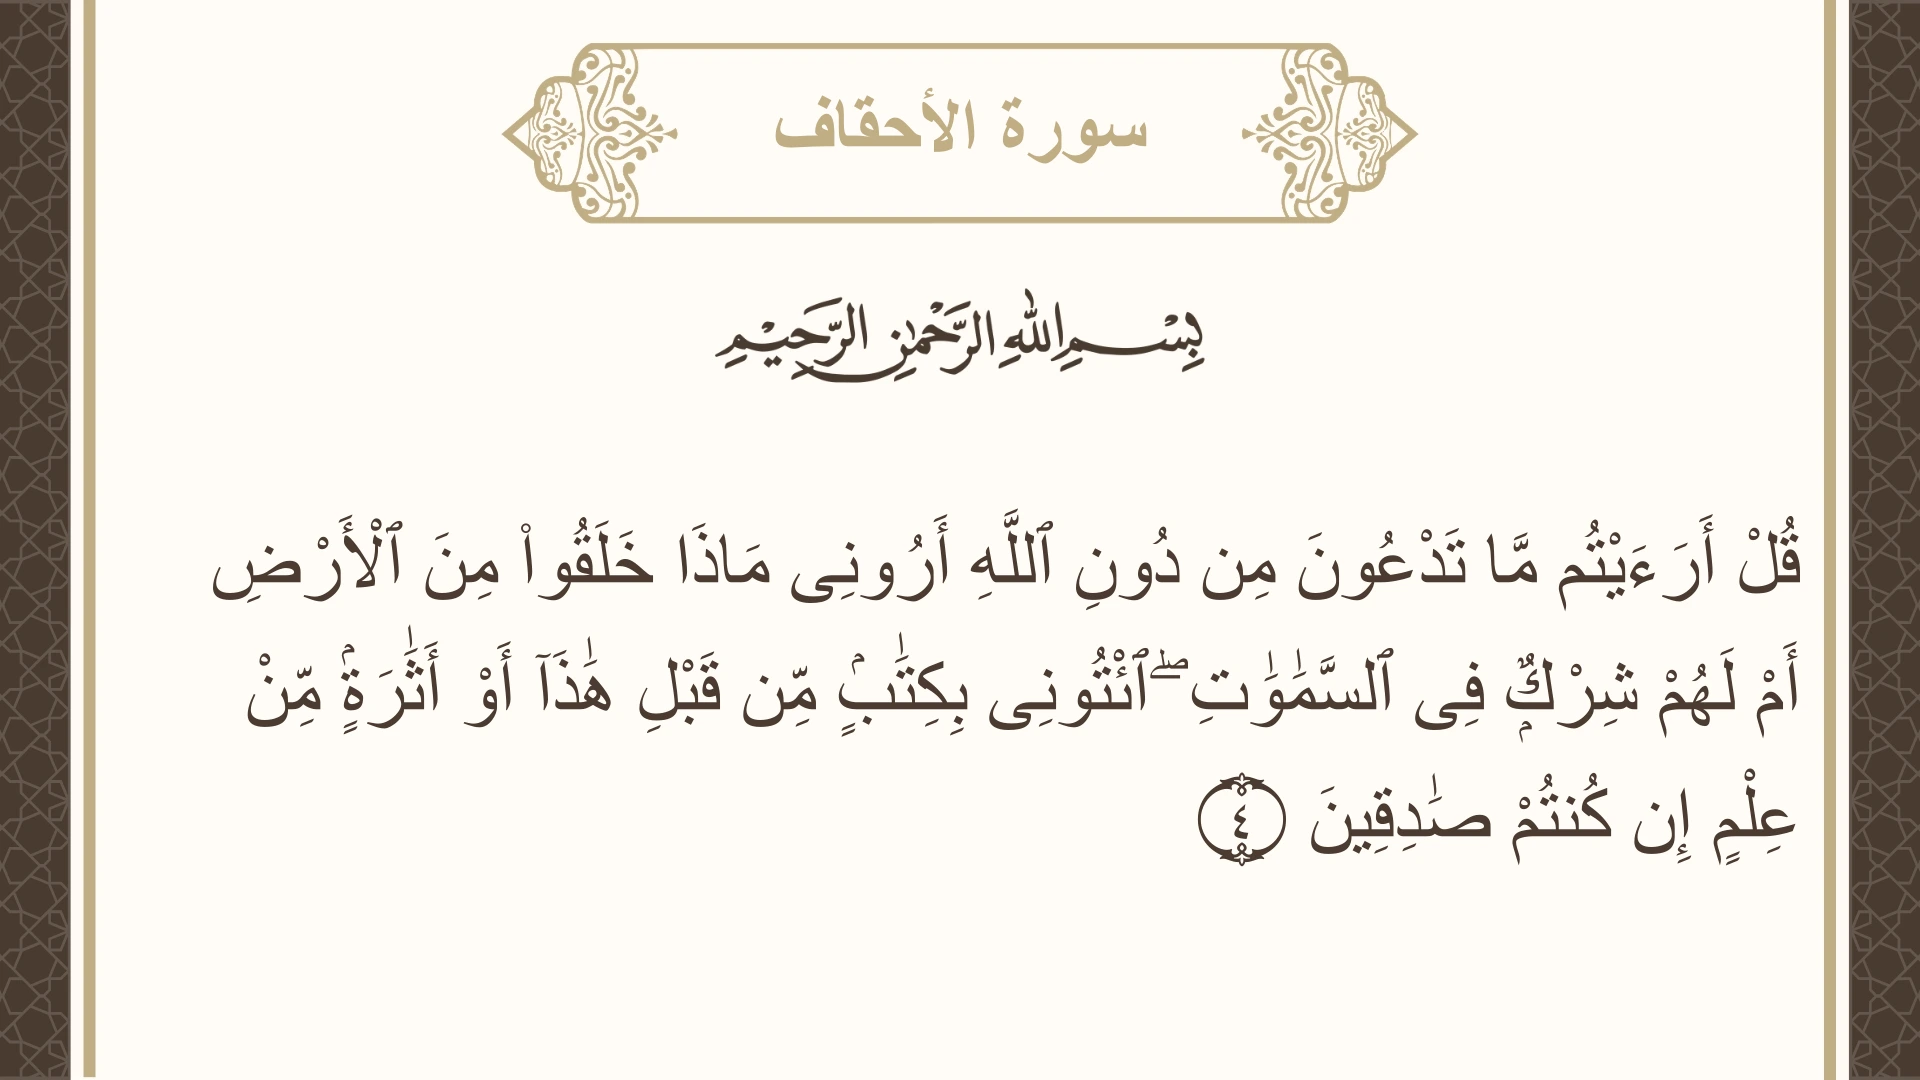 سورة الأحقاف
بِسْمِ اللهِ الرَّحْمٰنِ الرَّحِيْمِ
قُلْ أَرَءَيْتُم مَّا تَدْعُونَ مِن دُونِ ٱللَّهِ أَرُونِى مَاذَا خَلَقُوا۟ مِنَ ٱلْأَرْضِ
أَمْ لَهُمْ شِرْكٌۭ فِى ٱلسَّمَٰوَٰتِ ۖ ٱئْتُونِى بِكِتَٰبٍۢ مِّن قَبْلِ هَٰذَآ أَوْ أَثَٰرَةٍۢ مِّنْ
عِلْمٍ إِن كُنتُمْ صَٰدِقِينَ ٤